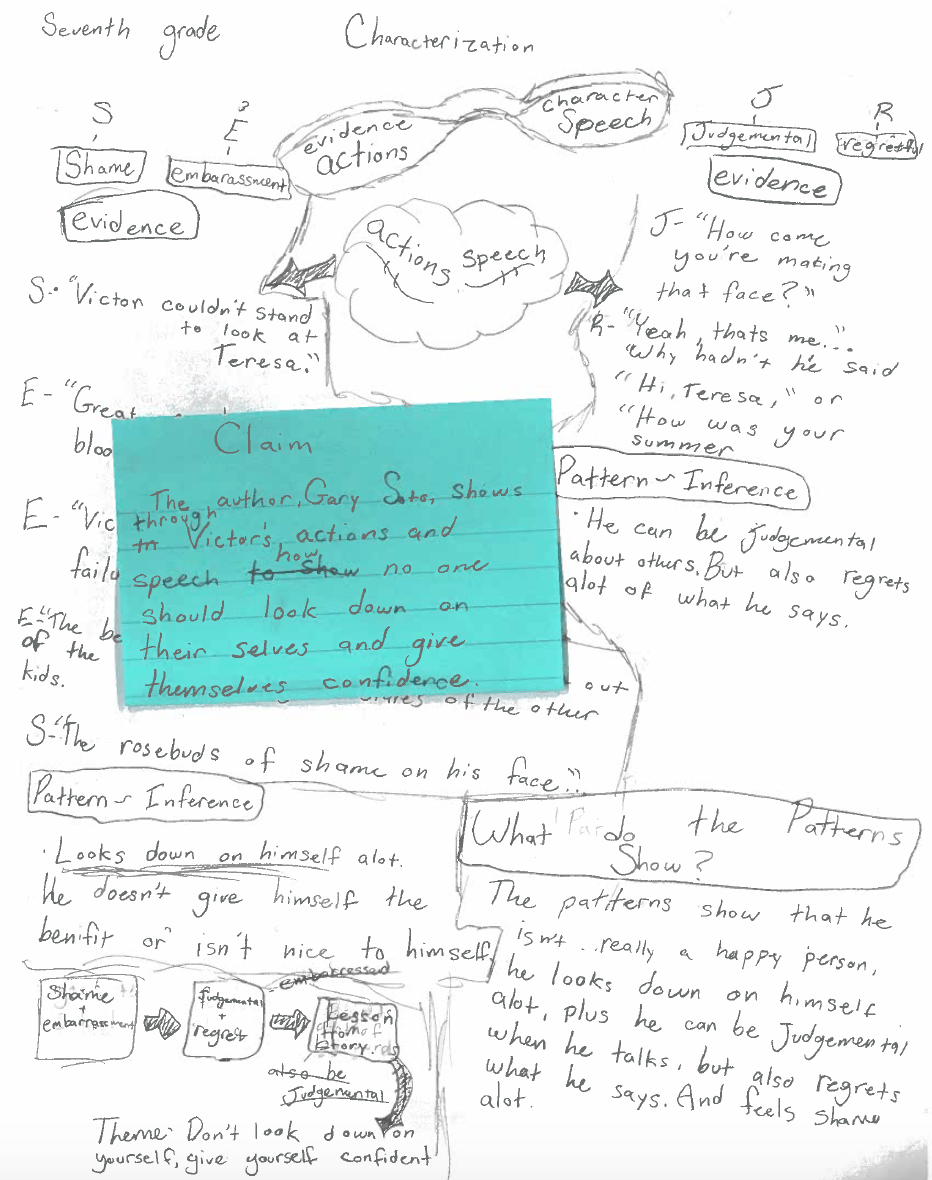 Seventh grade
Characterization
S
E
J
R
Shame
embarassment
evidence
actions
character
Speech
Judgemental
regretful
evidence
evidence
actions
speech
S- "Victor couldn't stand
to look at
Teresa."
E- "Great
bloo
E- "Vic
failu
E- "The be
of the
kids.
out
of the other
S- "The rosebuds of shame on his face."
J- "How come
you're making
that face?"
R- "Yeah, thats me..."
"Why hadn't he said
"Hi, Teresa," or
"How was your
summer
Claim
The author, Gary Soto, shows
through
to Victor's, actions and
how
speech to show no one
should look down on
their selves and give
themselves confidence.
Pattern ~ Inference
· He can be judgemental
about others. But also regrets
alot of what he says.
Pattern ~ Inference
· Looks down on himself alot.
He doesn't give himself the
benifit or isn't nice to himself.
What do the Patterns
Show?
The patterns show that he
isn't .. really a happy person,
he looks down on himself
alot, plus he can be Judgemental
when he talks, but also regrets
what he says. And feels shame
alot.
Shame
+
embarrassment
judgemental
+
regret
embarressed
Lesson
from
Story
also be
Judgemental
Theme- Don't look down on
yourself, give yourself confident